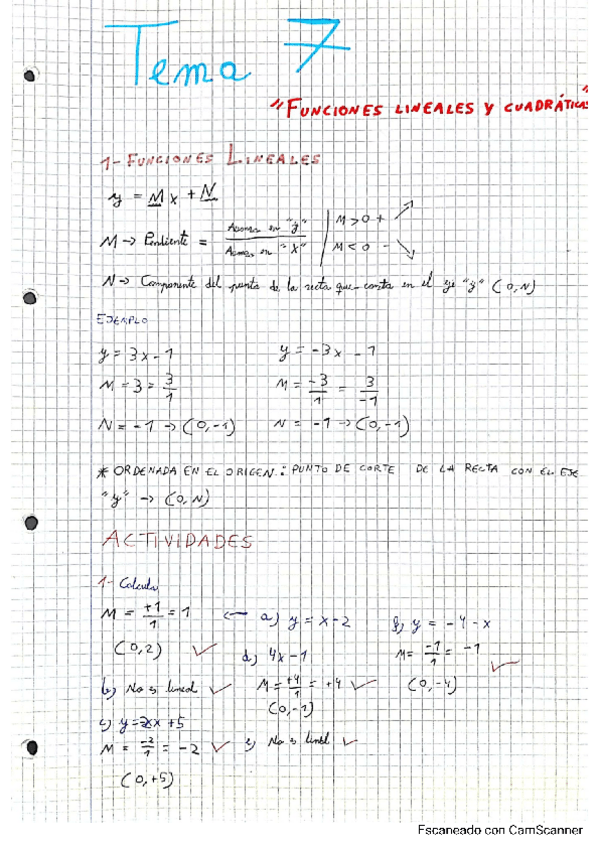 Tema 7
"FUNCIONES LINEALES Y CUADRÁTICAS"
1- FUNCIONES LINEALES
y = Mx + N
M → Pendiente = Avance en "y" / Avance en "x" | M > 0 + ↗
M < 0 - ↘
N → Componente del punto de la recta que corta en el eje "y" (0,N)
EJEMPLO
y = 3x - 1 y = -3x - 1
M = 3 = 3/1 M = -3/1 = 3/-1
N = -1 → (0,-1) N = -1 → (0,-1)
* ORDENADA EN EL ORIGEN: PUNTO DE CORTE DE LA RECTA CON EL EJE
"y" → (0,N)
ACTIVIDADES
1- Calcula
M = +1/1 = 1 ← a) y = x - 2 f) y = -4 - x
(0,2) ✓ d) 4x - 1 M = -1/1 = -1 ✓
b) No es lineal ✓ M = +4/1 = +4 ✓ (0,-4)
(0,-1)
c) y = x + 5
M = -2/1 = -2 ✓ e) No es lineal ✓
(0,+5)
Escaneado con CamScanner